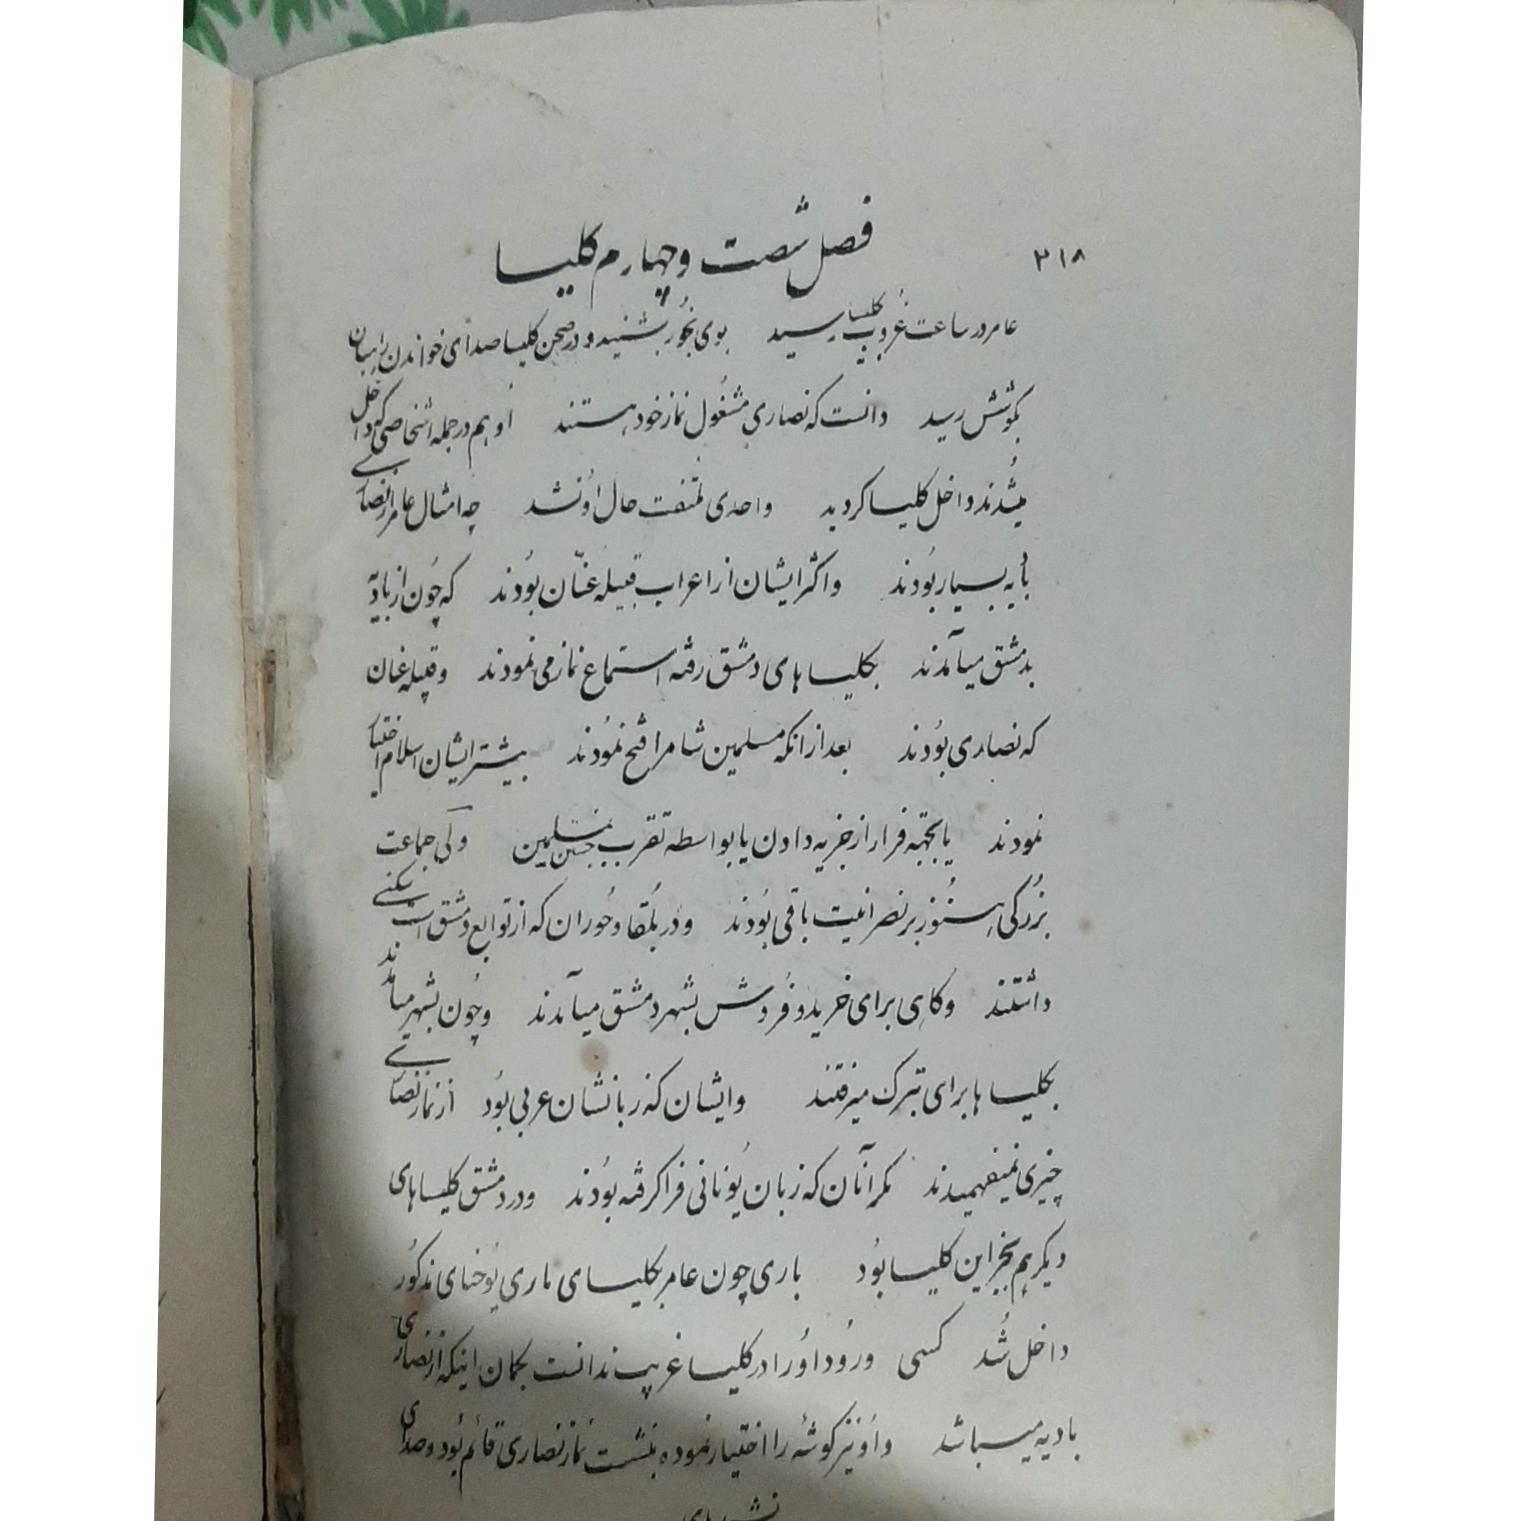 ۲۱۸
فصل شصت و چهارم کلیسا
عامر در ساعت غروب بکلیسا رسید بوی بخور بشنید و در صحن کلیسا صدای خواندن راهبان
بگوشش رسید دانست که نصاری مشغول نماز خود هستند او هم در جمله اشخاصی که داخل
میشدند داخل کلیسا گردید واحدی ملتفت حال او نشد چه امثال عامر از نصارای
بادیه بسیار بودند واکثر ایشان از اعراب قبیله غسّان بودند که چون از بادیه
بدمشق میآمدند بکلیساهای دمشق رفته استماع نماز می نمودند وقبیله غسان
که نصاری بودند بعد از انکه مسلمین شامرا فتح نمودند بیشتر ایشان اسلام اختیار
نمودند یا بجهة فرار از جزیه دادن یا بواسطه تقرب جستن بمسلمین ولی جماعت
بزرگی هنوز بر نصرانیت باقی بودند و در بلقا و حوران که از توابع دمشق است سکنی
داشتند وگاهی برای خرید و فروش بشهر دمشق میآمدند وچون بشهر میآمدند
بکلیساها برای تبرک میرفتند وایشان که زبانشان عربی بود از نماز نصاری
چیزی نمیفهمیدند مگر آنان که زبان یونانی فرا گرفته بودند ودر دمشق کلیساهای
دیگر هم بجز این کلیسا بود باری چون عامر بکلیسای ماری یوحنای مذکور
داخل شد کسی ورود او را در کلیسا غریب ندانست بگمان اینکه از نصارای
بادیه میباشد و او نیز گوشهٔ را اختیار نموده بنشست نماز نصاری قائم بود وصدای